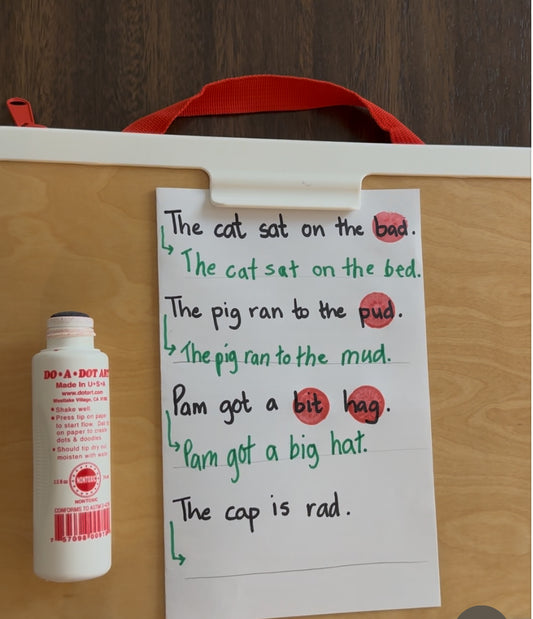 The cat sat on the bad.
The cat sat on the bed.
The pig ran to the pud.
The pig ran to the mud.
Pam got a bit hag.
Pam got a big hat.
The cap is rad.
DO•A•DOT ART
Made in U•S•A
www.dotart.com
Westlake Village, CA
• Shake well.
• Press tip on paper
to start flow.
on paper to create
dots & doodles
• Should tip dry out
moisten with water
NONTOXIC
NONTOXIC
CONFORMS TO ASTM